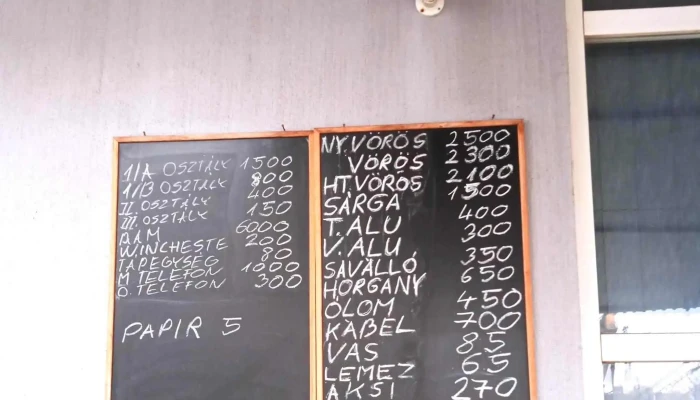 1/A OSZTÁLY 1500
1/B OSZTÁLY 800
II. OSZTÁLY 400
III. OSZTÁLY 150
RAM 6000
WINCHESTE 200
TÁPEGYSÉG 80
M TELEFON 1000
O. TELEFON 300
PAPIR 5
NY.VÖRÖS 2500
VÖRÖS 2300
HT.VÖRÖS 2100
SÁRGA 1500
T.ALU 400
V.ALU 300
SAVÁLLÓ 350
HORGANY 650
ÓLOM 450
KÁBEL 700
VAS 85
LEMEZ 65
AKSI 270